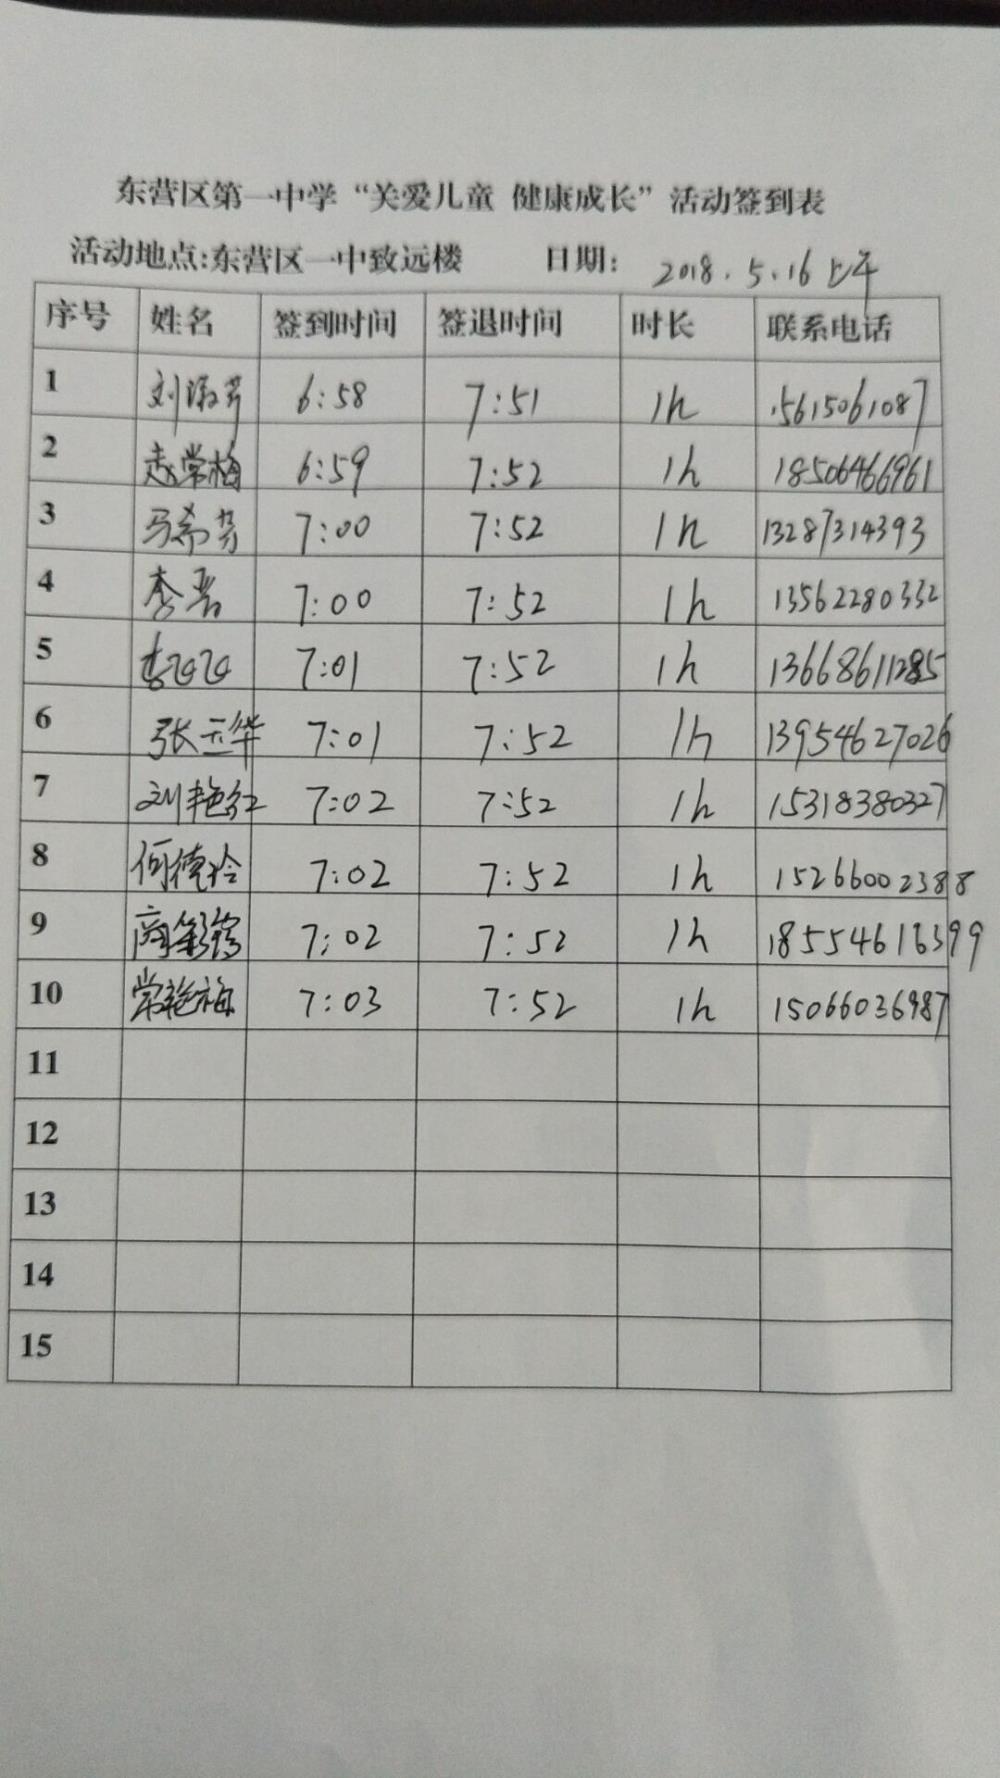 东营区第一中学“关爱儿童 健康成长”活动签到表
活动地点:东营区一中致远楼 日期: 2018.5.16 上午
序号 姓名 签到时间 签退时间 时长 联系电话
1 刘淑芹 6:58 7:51 1h 15615061087
2 赵常梅 6:59 7:52 1h 18506466961
3 马希芳 7:00 7:52 1h 13287314393
4 7:00 7:52 1h 13562280332
5 7:01 7:52 1h
6 张玉华 7:01 7:52 1h 13954627026
7 刘艳红 7:02 7:52 1h 15318380327
8 何德玲 7:02 7:52 1h 15266002388
9 7:02 7:52 1h
10 常艳梅 7:03 7:52 1h 15066036987
11
12
13
14
15